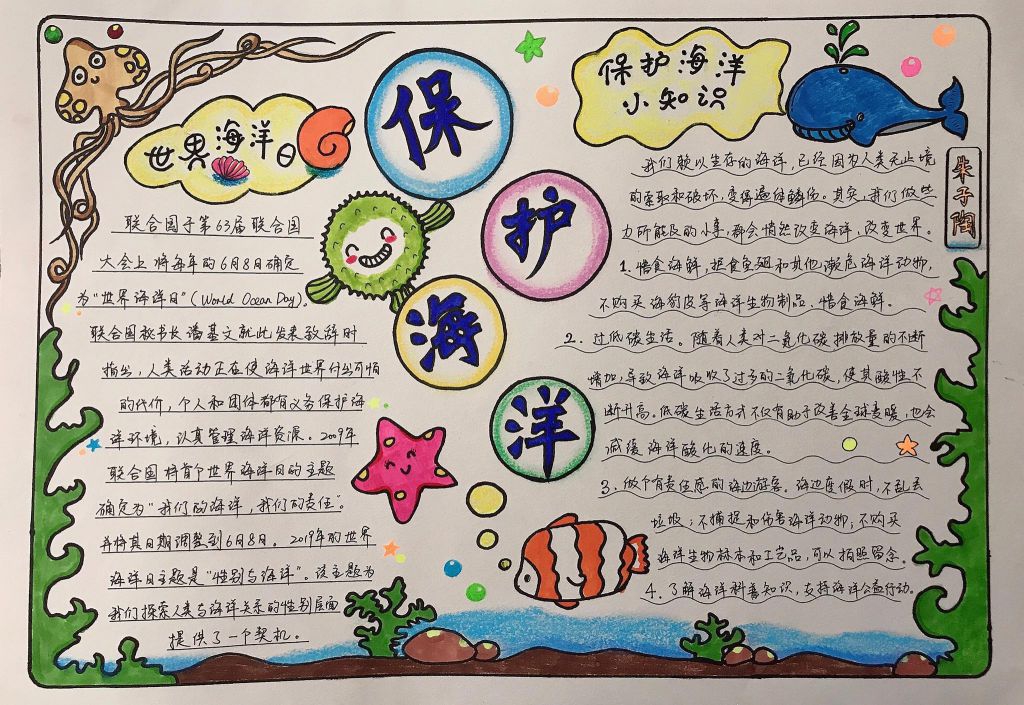 保
护
海
洋
世界海洋日
联合国于第63届联合国
大会上将每年的6月8日确定
为“世界海洋日”(World Ocean Day)。
联合国秘书长潘基文就此发表致辞时
指出，人类活动正在使海洋世界付出可怕
的代价，个人和团体都有义务保护海
洋环境，认真管理海洋资源。2009年
联合国将首个世界海洋日的主题
确定为“我们的海洋，我们的责任”。
并将其日期调整到6月8日。2019年的世界
海洋日主题是“性别与海洋”。该主题为
我们探索人类与海洋关系的性别层面
提供了一个契机。
保护海洋
小知识
我们赖以生存的海洋，已经因为人类无止境
的索取和破坏，变得遍体鳞伤。其实，我们做些
力所能及的小事，都会悄然改变海洋，改变世界。
1.惜食海鲜，拒食鱼翅和其他濒危海洋动物，
不购买海豹皮等海洋生物制品、惜食海鲜。
2.过低碳生活。随着人类对二氧化碳排放量的不断
增加，导致海洋吸收了过多的二氧化碳，使其酸性不
断升高。低碳生活方式不仅有助于改善全球变暖，也会
减缓海洋酸化的速度。
3.做个有责任感的海边游客。海边度假时，不乱丢
垃圾；不捕捉和伤害海洋动物；不购买
海洋生物标本和工艺品，可以拍照留念。
4.了解海洋科普知识，支持海洋公益行动。
朱子陶